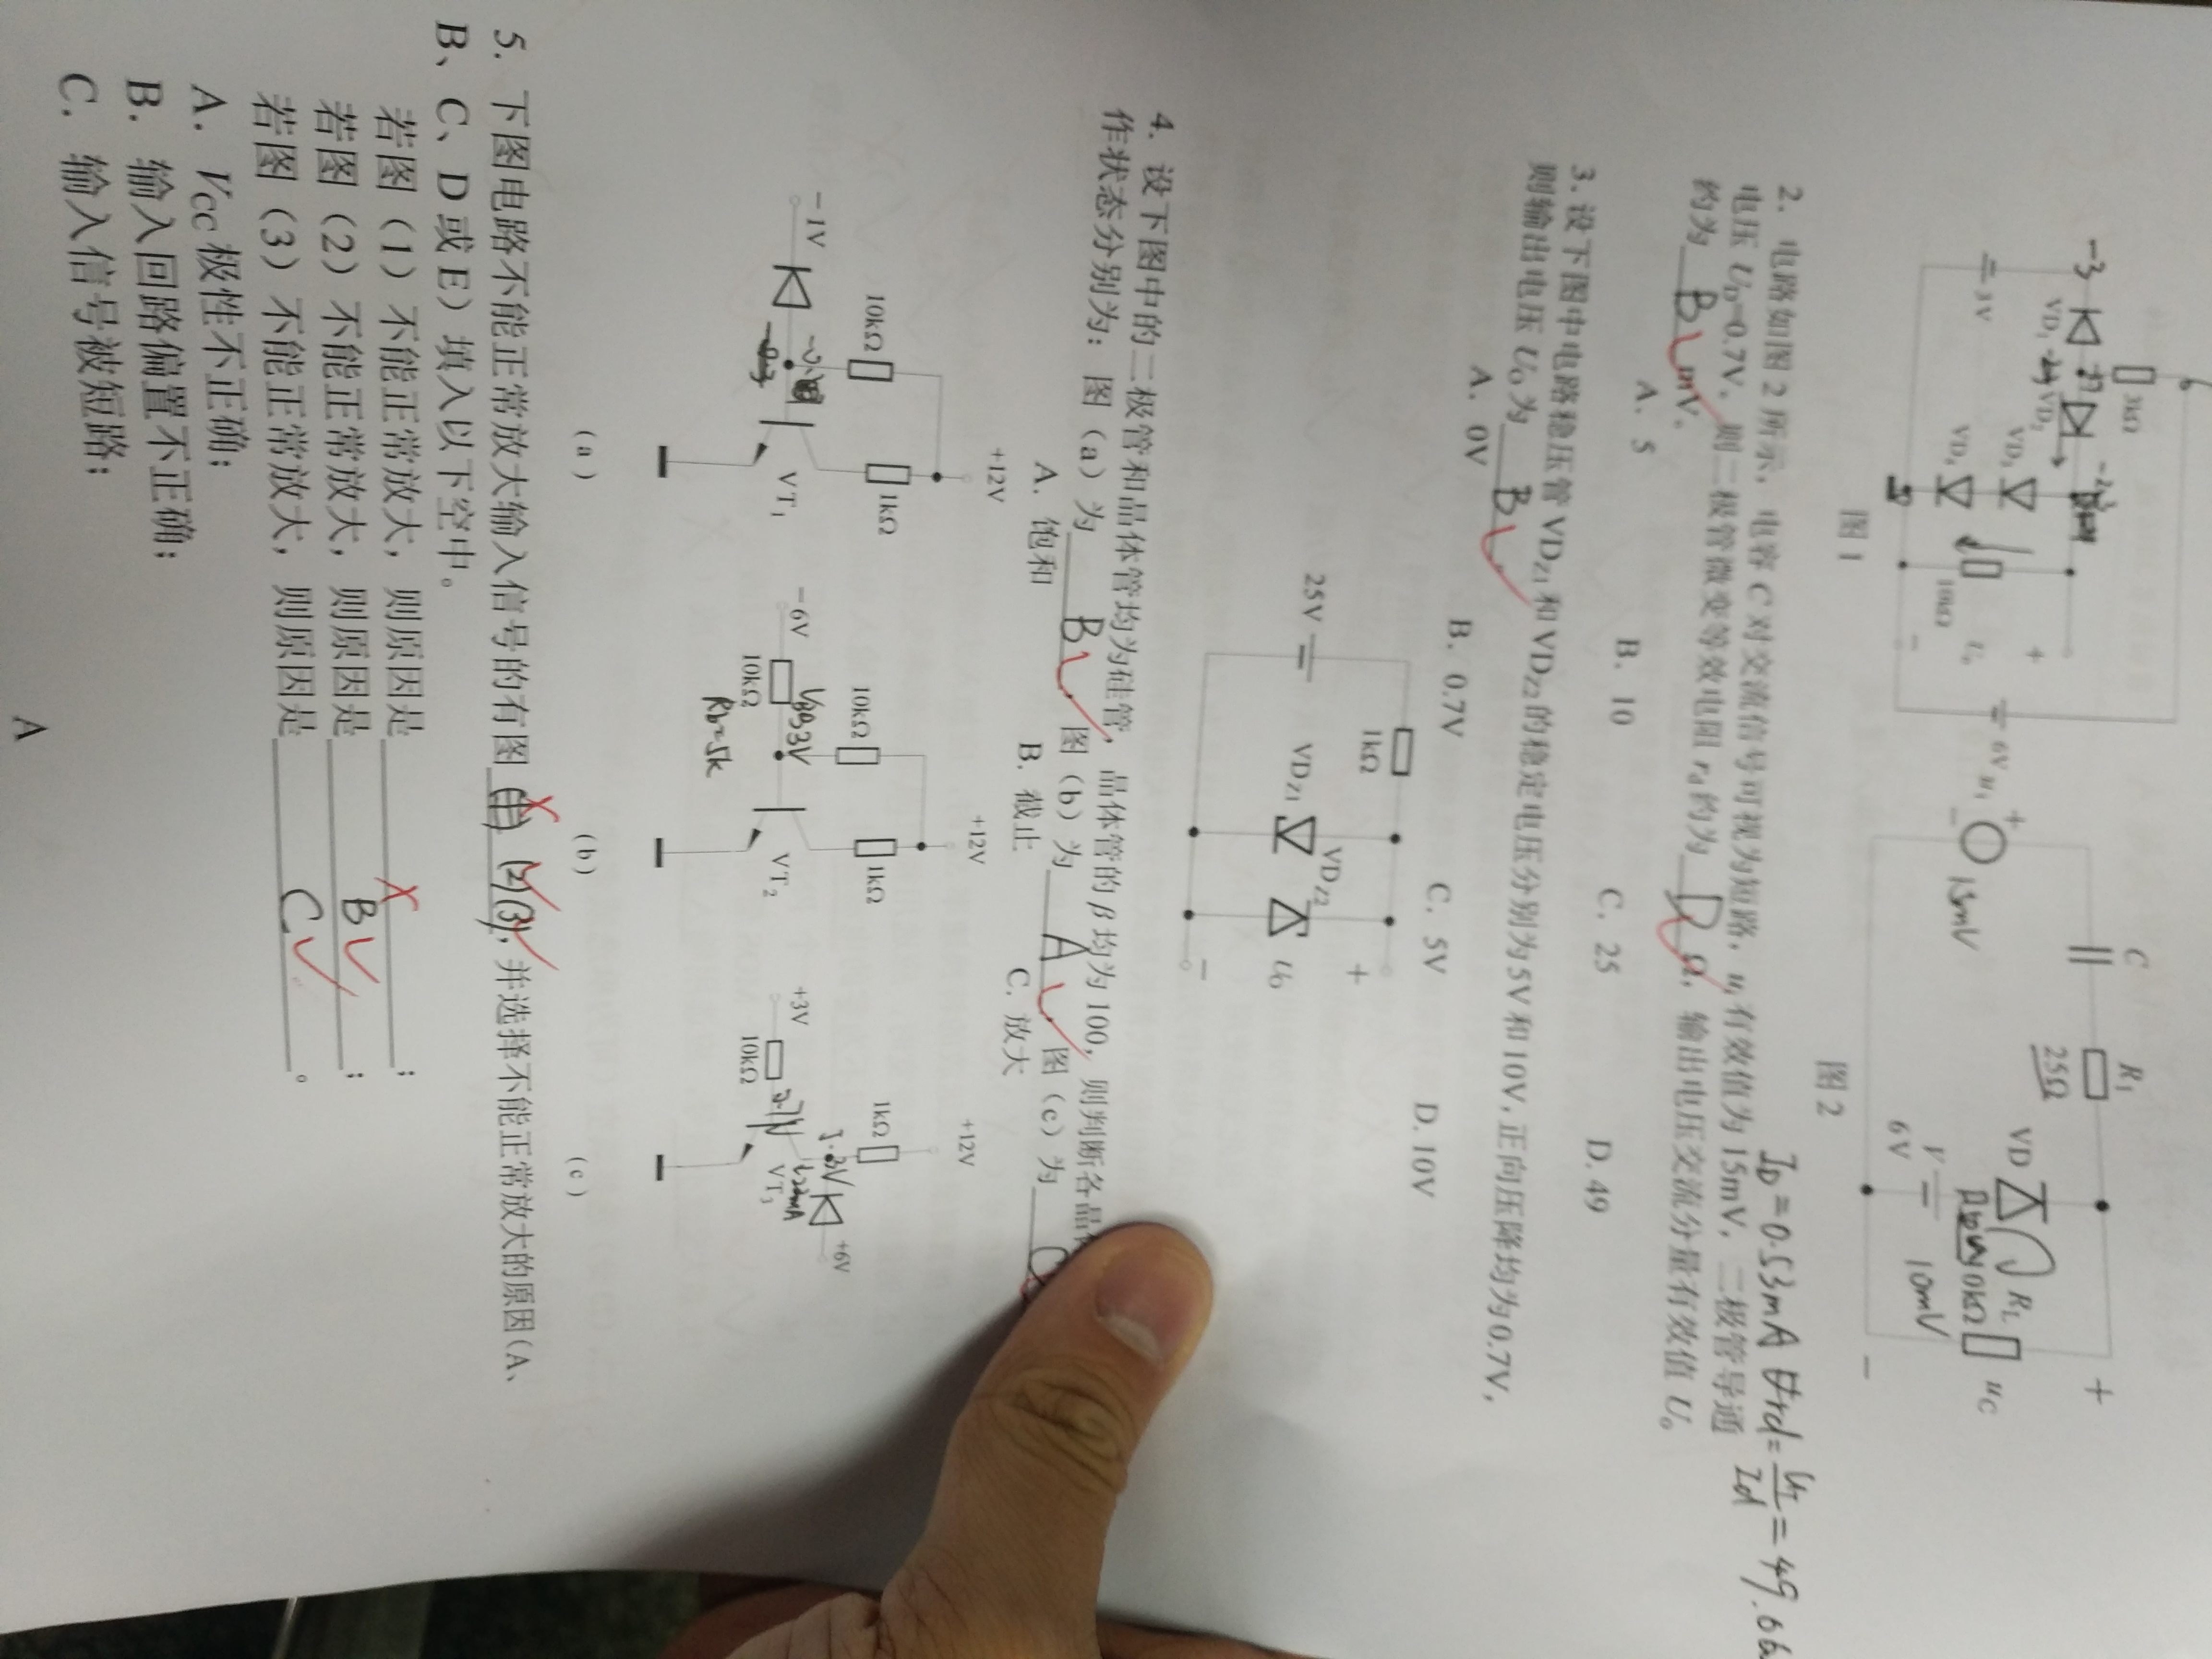 3kΩ
-3
VD₁
VD₂
VD₃
VD₄
3V
10kΩ
6V
图 1
C
R₁
25Ω
+
VD
R_L
u_C
15mV
10mV
V
6V
图 2
I_D=0.53mA
2. 电路如图 2 所示，电容 C 对交流信号可视为短路，uᵢ有效值为 15mV，二极管导通
电压 U_D=0.7V。则二极管微变等效电阻 r_d 约为 D Ω，输出电压交流分量有效值 Uₒ
约为 B mV。
A. 5 B. 10 C. 25 D. 49
3. 设下图中电路稳压管 VD_Z1 和 VD_Z2 的稳定电压分别为 5V 和 10V，正向压降均为 0.7V，
则输出电压 U_O 为 B 。
A. 0V B. 0.7V C. 5V D. 10V
1kΩ
25V
VD_Z1
VD_Z2
U_O
+
−
4. 设下图中的二极管和晶体管均为硅管，晶体管的 β 均为 100，则判断各晶
作状态分别为：图（a）为 B ，图（b）为 A ，图（c）为 C
A. 饱和 B. 截止 C. 放大
+12V +12V +12V
10kΩ 1kΩ 10kΩ 1kΩ 1kΩ
−1V VT₁
−6V 10kΩ VT₂
Rb=5k
+3V 10kΩ +6V VT₃
（a） （b） （c）
5. 下图电路不能正常放大输入信号的有图 (2)(3)，并选择不能正常放大的原因（A、
B、C、D 或 E）填入以下空中。
若图（1）不能正常放大，则原因是 ；
若图（2）不能正常放大，则原因是 B ；
若图（3）不能正常放大，则原因是 C 。
A. V_CC 极性不正确；
B. 输入回路偏置不正确；
C. 输入信号被短路；
A